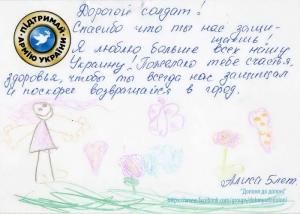 ПІДТРИМАЙ АРМІЮ УКРАЇНИ
Дорогой солдат!
Спасибо что ты нас защи-
щаешь!
Я люблю больше всех нашу
Украину! Пережелаю тебе счастья,
здоровья, чтобы ты всегда нас защищал
и поскорее возвращался в город.
Алиса 5 лет
"Долоня до долоні"